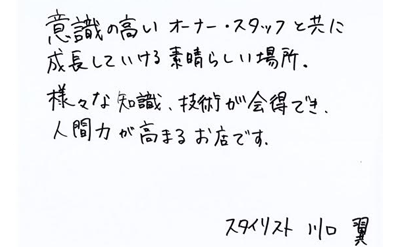 意識の高いオーナー・スタッフと共に
成長していける素晴らしい場所。
様々な知識、技術が会得でき、
人間力が高まるお店です。
スタイリスト 川口 翼